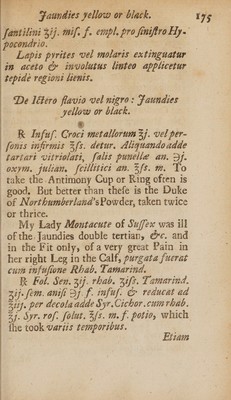 Jaundies yellow or black. 175
ſantilini ʒij. miſ. f. empl. pro ſiniſtro Hy-
pocondrio.
Lapis pyrites vel molaris extinguatur
in aceto & involutus linteo applicetur
tepidè regioni lienis.
De Ictero flavio vel nigro : Jaundies
yellow or black.
℞ Infuſ. Croci metallorum ℥j. vel per-
ſonis infirmis ℥ſs. detur. Aliquando adde
tartari vitriolati, ſalis punellæ an. ℈j.
oxym. julian. ſcillitici an. ℥ſs. m. To
take the Antimony Cup or King often is
good. But better than theſe is the Duke
of Northumberland's Powder, taken twice
or thrice.
My Lady Montacute of Suſſex was ill
of the Jaundies double tertian, &c. and
in the Fit only, of a very great Pain in
her right Leg in the Calf, purgata fuerat
cum infuſione Rhab. Tamarind.
℞ Fol. Sen. ʒij. rhab. ʒiſs. Tamarind.
ʒij. ſem. aniſi ℈j. f. infuſ. & reducat ad
℥iij. per decola adde Syr. Cichor. cum rhab.
℥j. Syr. roſ. ſolut. ℥ſs. m. f. potio, which
ſhe took variis temporibus.
Etiam